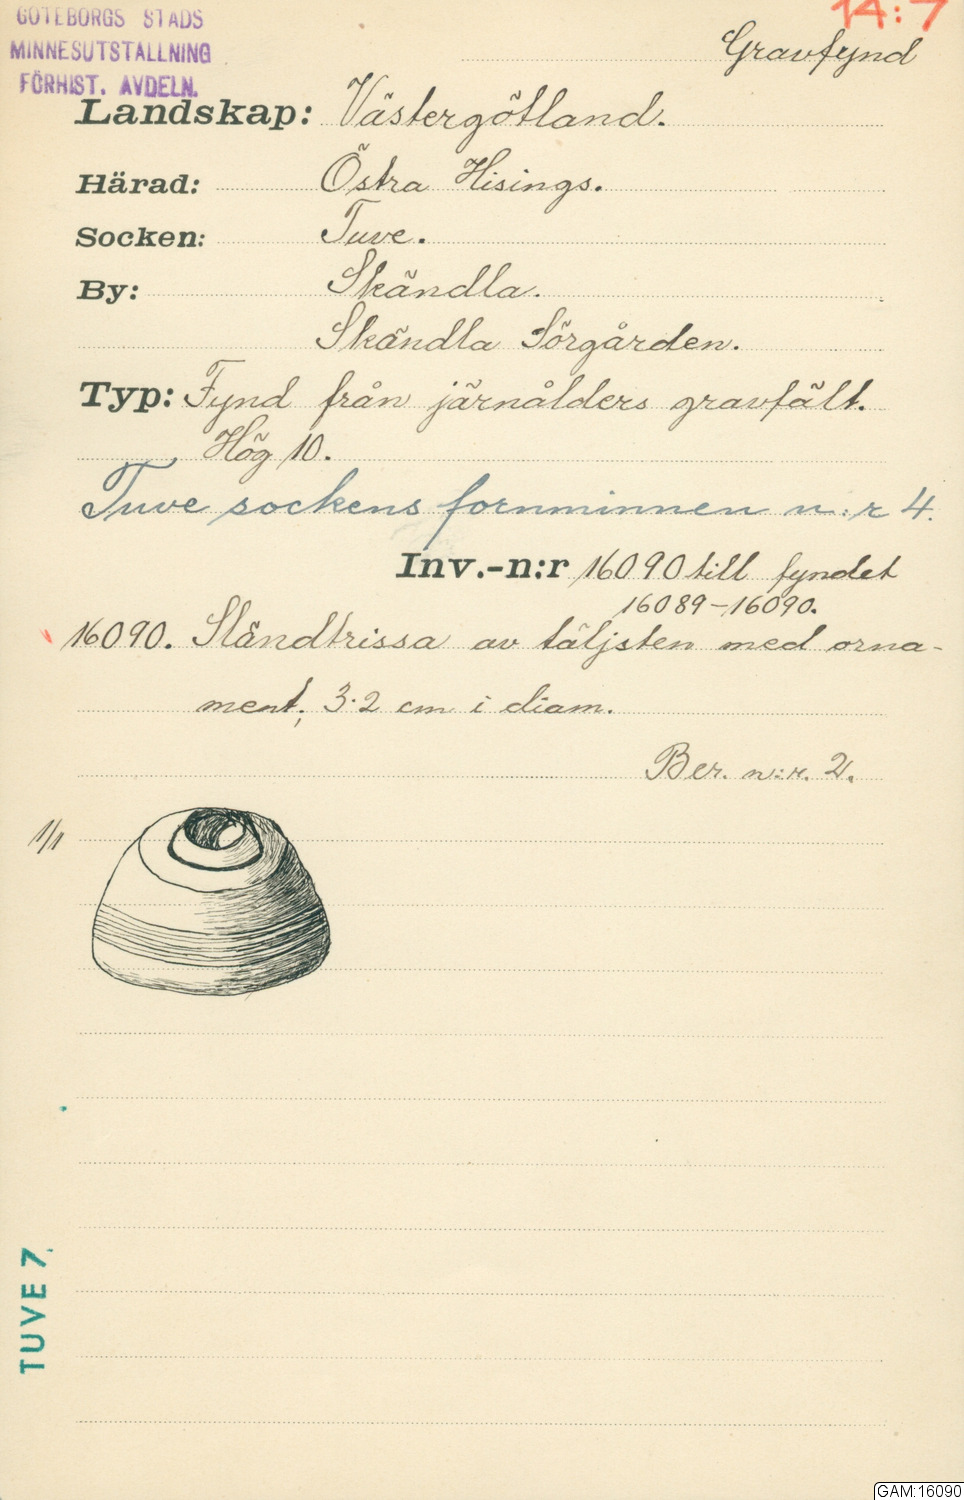 GÖTEBORGS STADS
MINNESUTSTÄLLNING
FÖRHIST. AVDELN.
14:7
Gravfynd
Landskap: Västergötland.
Härad: Östra Hisings.
Socken: Tuve.
By: Skändla.
Skändla Sörgården.
Typ: Fynd från järnålders gravfält.
Hög 10.
Tuve sockens fornminnen n:r 4.
Inv.-n:r 16090 till fyndet
16089-16090.
16090. Sländtrissa av täljsten med orna-
ment; 3.2 cm i diam.
Ber. n:r. 2.
1/1
TUVE 7.
GAM:16090